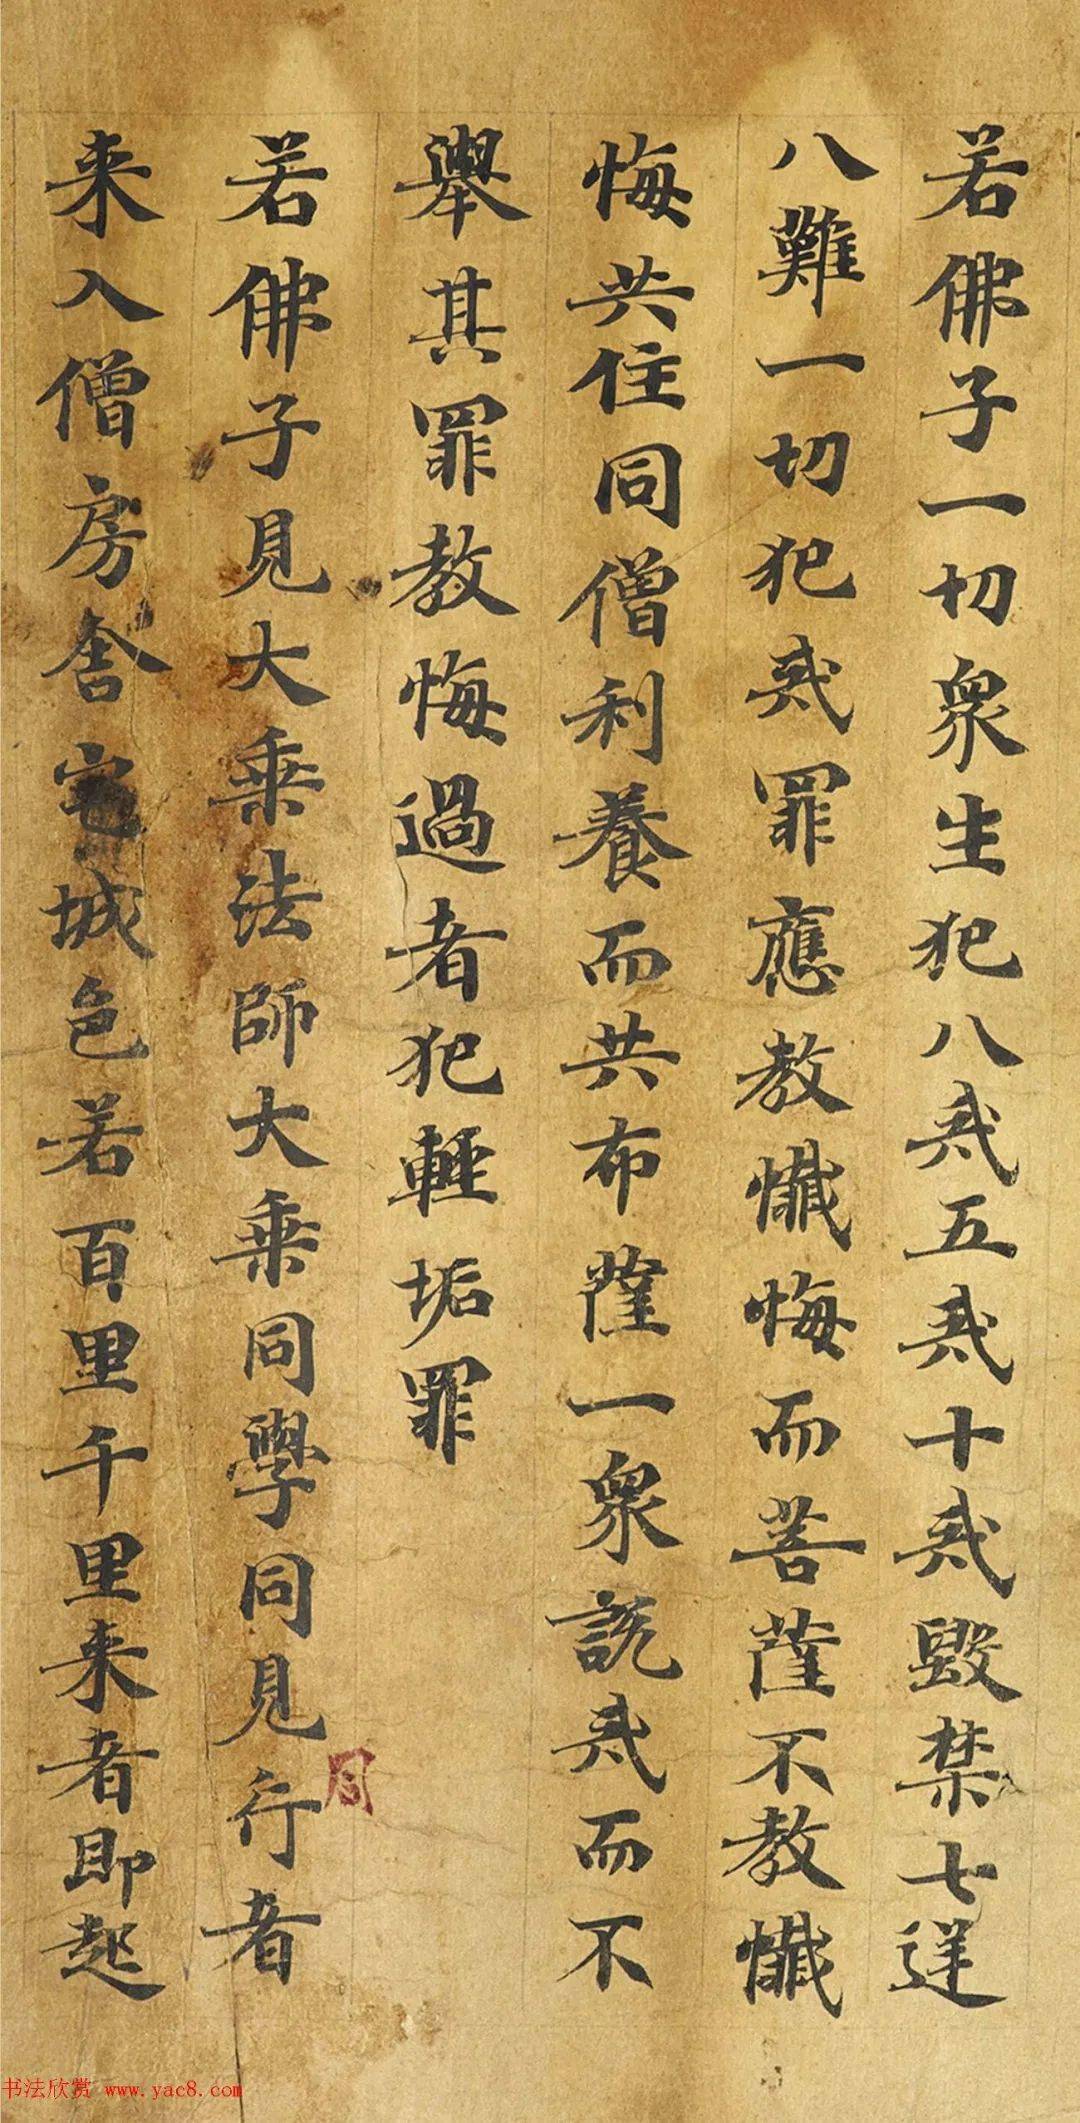 若佛子一切眾生犯八戒五戒十戒毀禁七逆
八難一切犯戒罪應教懺悔而菩薩不教懺
悔共住同僧利養而共布薩一眾說戒而不
舉其罪教悔過者犯輕垢罪
若佛子見大乘法師大乘同學同見行者
来入僧房舍宅城邑若百里千里来者即起
书法欣赏 www.yac8.com